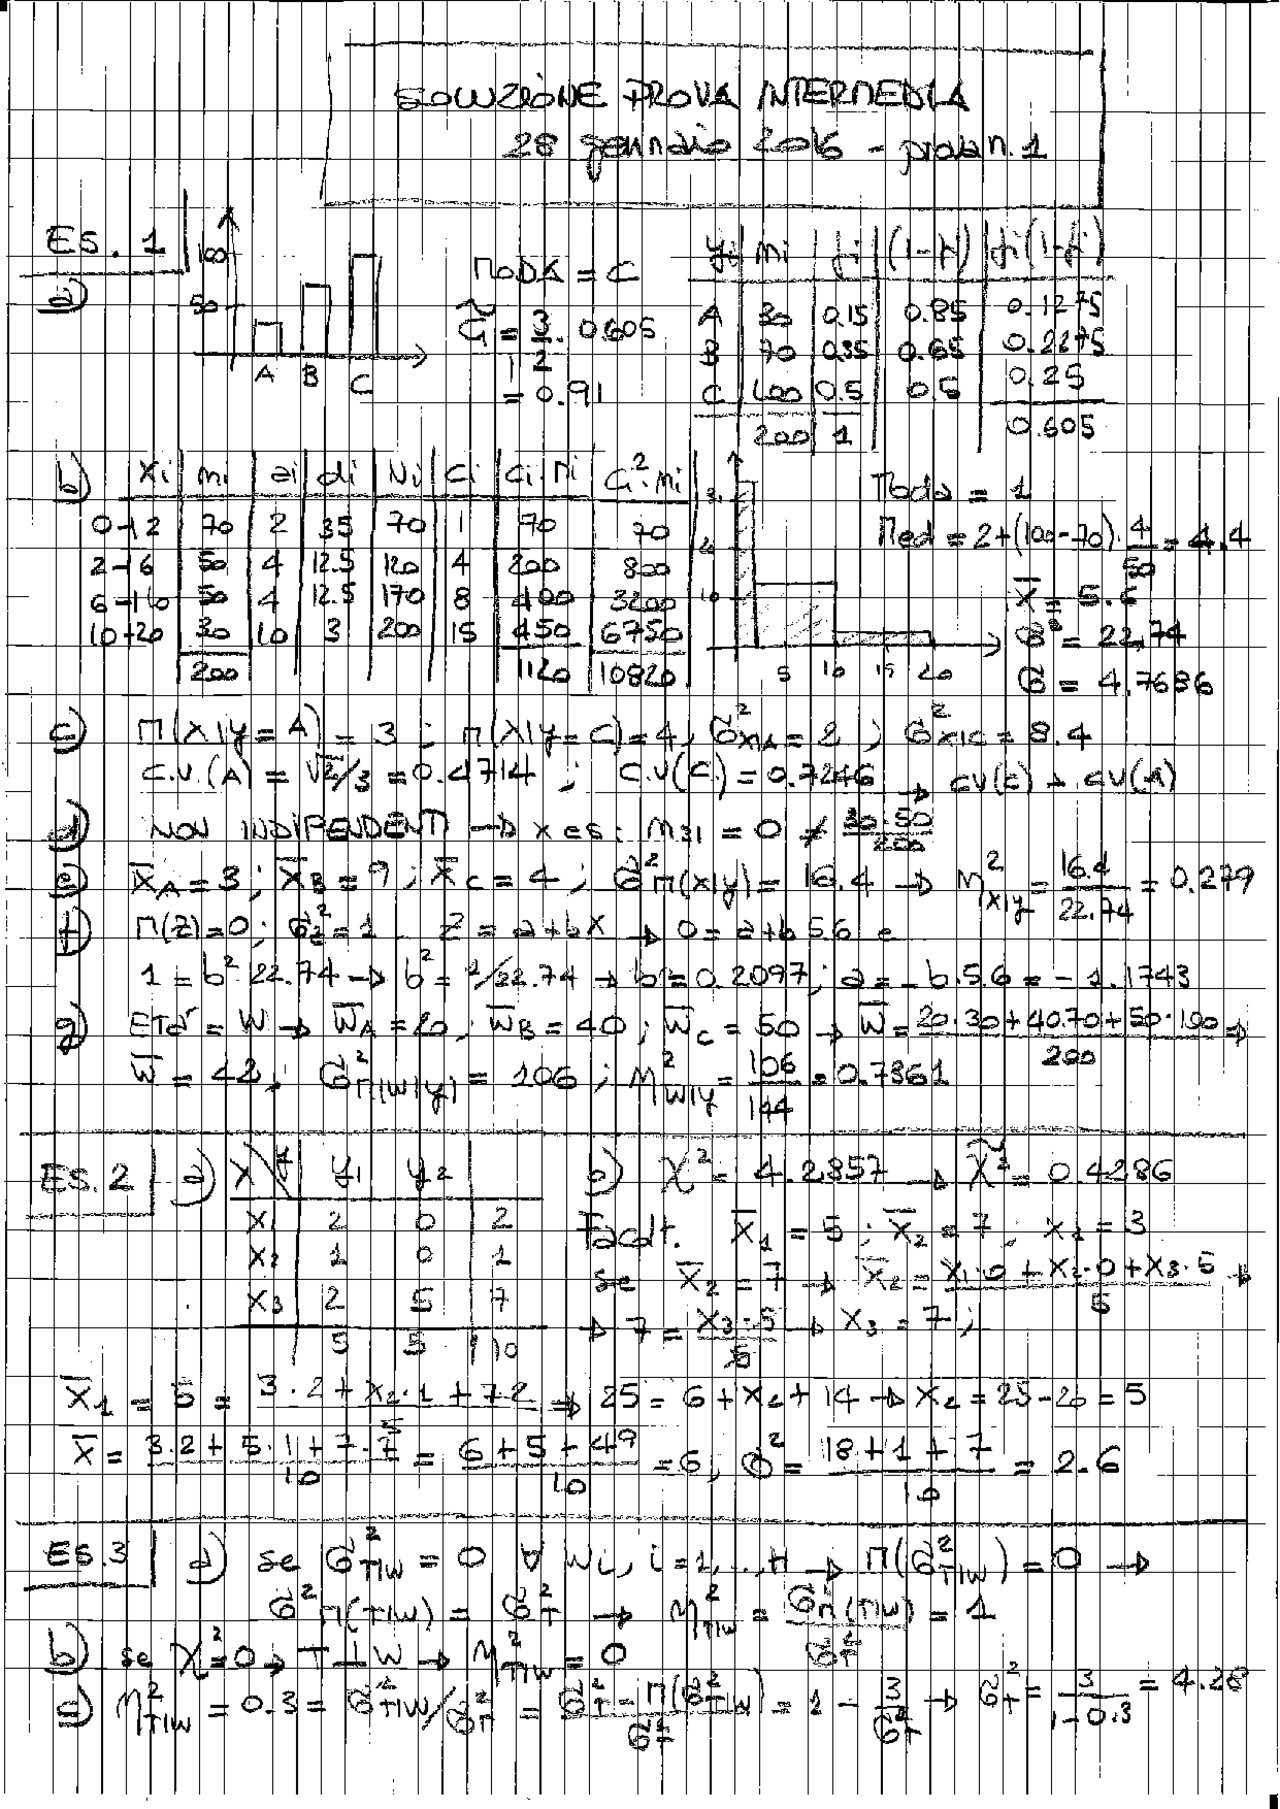 SOLUZIONE PROVA INTERMEDIA
28 gennaio 2016 - prova n. 1
ES. 1
a)
100
50
A B C
MODA = C
G̃ = 3/2 · 0.605
= 0.91
yi | ni | fi | (1-fi) | fi(1-fi)
A | 30 | 0.15 | 0.85 | 0.1275
B | 70 | 0.35 | 0.65 | 0.2275
C | 100 | 0.5 | 0.5 | 0.25
200 | 1 | 0.605
b)
xi | ni | ai | di | Ni | ci | ci·ni | ci²·ni
0-12 | 70 | 2 | 35 | 70 | 1 | 70 | 70
2-16 | 50 | 4 | 12.5 | 120 | 4 | 200 | 800
6-10 | 50 | 4 | 12.5 | 170 | 8 | 400 | 3200
10-20 | 30 | 10 | 3 | 200 | 15 | 450 | 6750
200 | 1120 | 10820
10
5 10 15 20
Moda = 1
Med = 2+(100-70)·4/50 = 4.4
x̄ = 5.6
σ² = 22.74
σ = 4.7686
c) M(X|Y=A) = 3 ; M(X|Y=C)=4 ; σ²X|A = 2 ; σ²X|C = 8.4
C.V.(A) = √2/3 = 0.4714 ; C.V(C) = 0.7246 → CV(C) > CV(A)
d) NON INDIPENDENTI → x es: n31 = 0 ≠ 30·50/200
e) X̄A = 3 ; X̄B = 9 ; X̄C = 4 ; σ²M(X|Y) = 16.4 → η²X|Y = 16.4/22.74 = 0.279
f) M(Z)=0 ; σ²Z = 1 Z = a+bX → 0 = a+b 5.6 e
1 = b² 22.74 → b² = 1/22.74 → b = 0.2097 ; a = -b·5.6 = -1.1743
g) Età = W → W̄A = 20 ; W̄B = 40 ; W̄C = 50 → W̄ = 20·30+40·70+50·100/200 ⇒
W̄ = 42 ; σ²M(W|Y) = 106 ; η²W|Y = 106/144 = 0.7361
ES. 2
a)
X\Y | y1 | y2
x1 | 2 | 0 | 2
x2 | 1 | 0 | 1
x3 | 2 | 5 | 7
5 | 5 | 10
e) χ² = 4.2857 → χ̃² = 0.4286
Facolt. X̄1 = 5 ; X̄2 = 7 ; x1 = 3
se X̄2 = 7 → X̄2 = x1·0 + x2·0 + x3·5/5 →
→ 7 = x3·5/5 → x3 = 7 ;
X̄1 = 5 = 3·2 + x2·1 + 7·2/5 ⇒ 25 = 6 + x2 + 14 → x2 = 25-20 = 5
X̄ = 3·2 + 5·1 + 7·7/10 = 6+5+49/10 = 6 ; σ² = 18+1+7/10 = 2.6
ES. 3
a) se σ²T|W = 0 ∀ wi, i=1,...,H → M(σ²T|W) = 0 →
σ²M(T|W) = σ²T → η²T|W = σ²M(T|W)/σ²T = 1
b) se χ² = 0 → T⊥W → η²T|W = 0
c) η²T|W = 0.3 = σ²T|W/σ²T = σ²T - M(σ²T|W)/σ²T = 1 - 3/σ²T → σ²T = 3/1-0.3 = 4.28